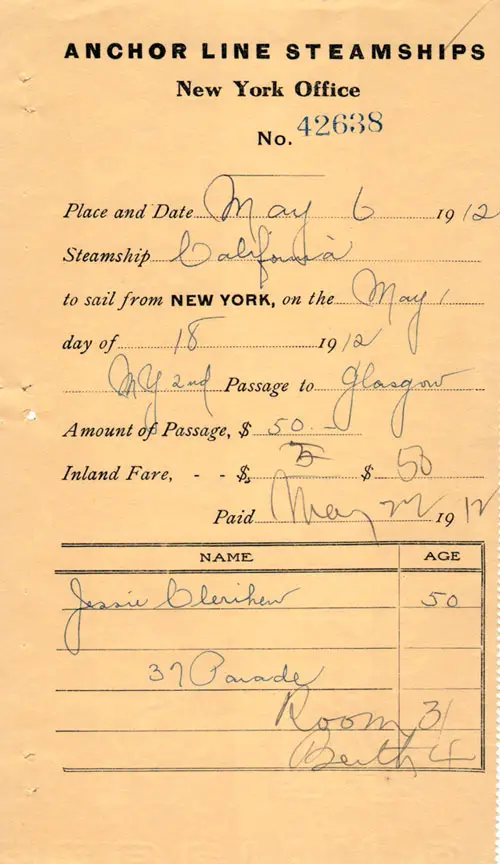 ANCHOR LINE STEAMSHIPS
New York Office
No. 42638
Place and Date May 6 1912
Steamship California
to sail from NEW YORK, on the May
day of 18 1912
NY 2nd Passage to Glasgow
Amount of Passage, $ 50.-
Inland Fare, - - $ $ 50
Paid May 1912
NAME AGE
Jessie Clerihew 50
37 Parade
Room 31
Berth 4